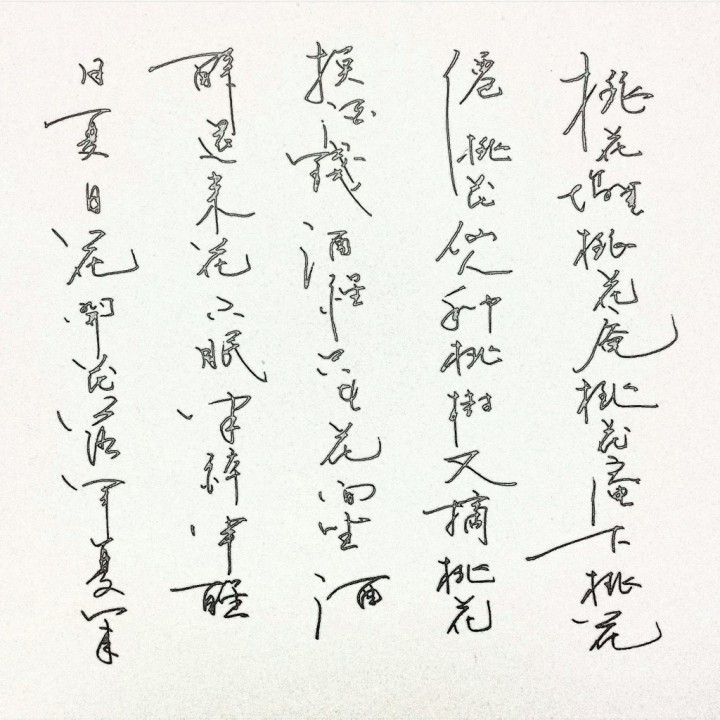 桃花塢裡桃花庵桃花庵下桃花
僊桃花仙人种桃樹又摘桃花
換酒錢酒醒只在花間坐酒
醉還來花下眠半醉半醒
日复日花開花落年复年